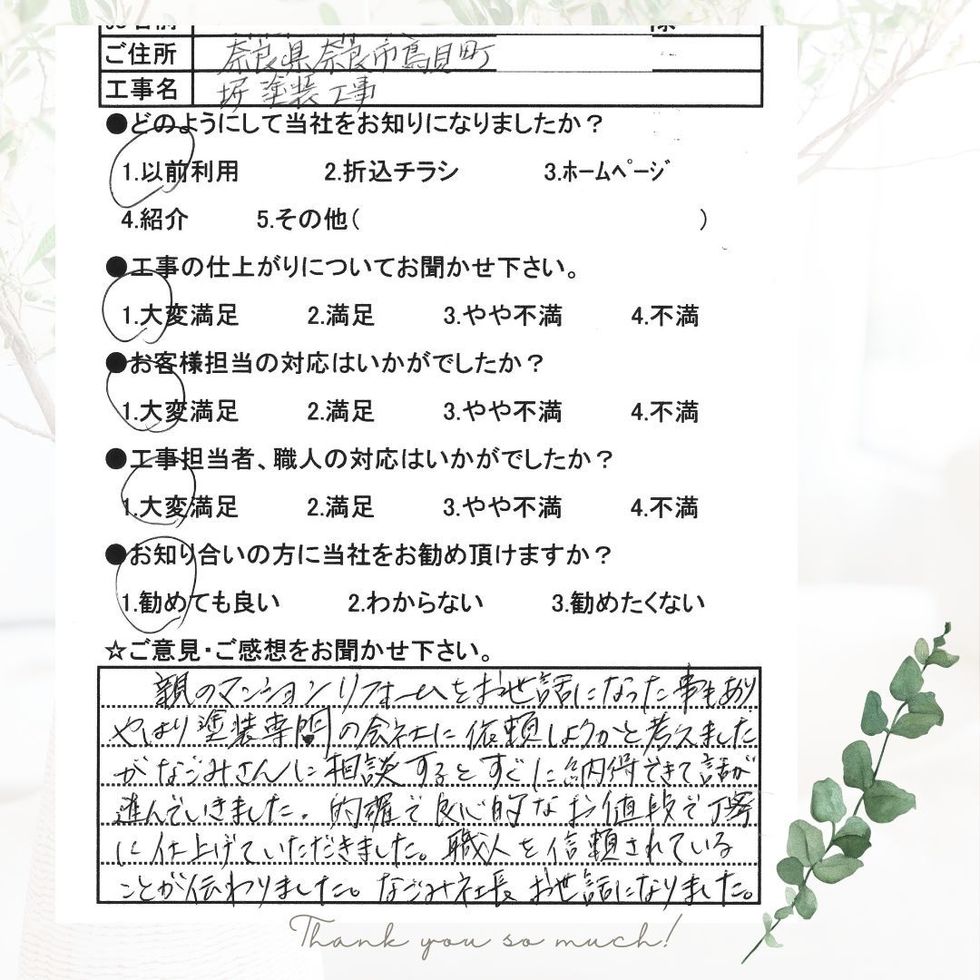 ご住所 奈良県奈良市鳥見町
工事名 塀塗装工事
●どのようにして当社をお知りになりましたか？
1.以前利用 2.折込チラシ 3.ﾎｰﾑﾍﾟｰｼﾞ
4.紹介 5.その他( )
●工事の仕上がりについてお聞かせ下さい。
1.大変満足 2.満足 3.やや不満 4.不満
●お客様担当の対応はいかがでしたか？
1.大変満足 2.満足 3.やや不満 4.不満
●工事担当者、職人の対応はいかがでしたか？
1.大変満足 2.満足 3.やや不満 4.不満
●お知り合いの方に当社をお勧め頂けますか？
1.勧めても良い 2.わからない 3.勧めたくない
☆ご意見･ご感想をお聞かせ下さい。
親のマンションリフォームをお世話になった事もあり
やはり塗装専門の会社に依頼しようかと考えました
がなごみさんに相談するとすぐに納得できて話が
進んでいきました。的確で良心的なお値段で丁寧
に仕上げていただきました。職人を信頼されている
ことが伝わりました。なごみ社長お世話になりました。
Thank you so much!